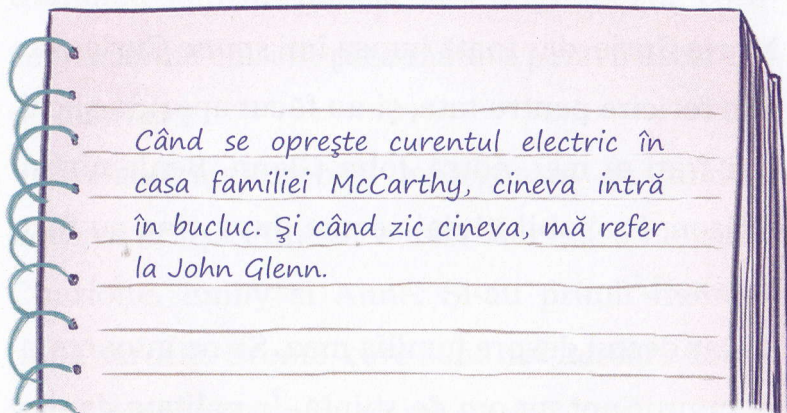 Când se opreşte curentul electric în
casa familiei McCarthy, cineva intră
în bucluc. Şi când zic cineva, mă refer
la John Glenn.